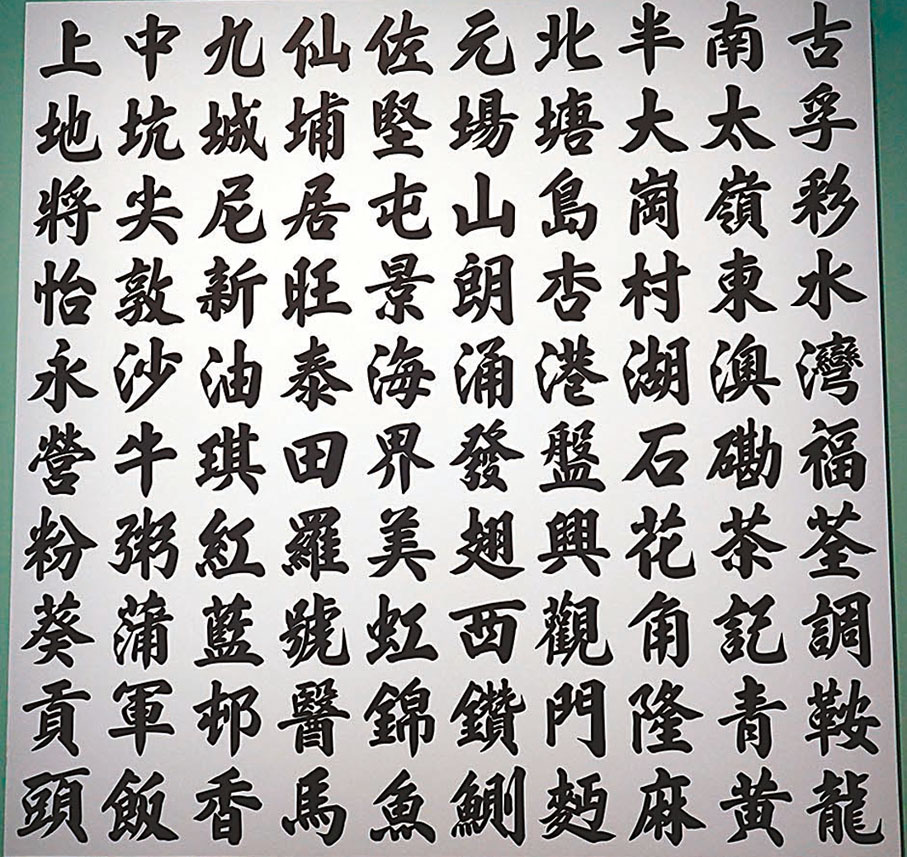 上中九仙佐元北半南古
地坑城埔堅場塘大太孚
將尖尼居屯山島崗嶺彩
怡敦新旺景朗杏村東水
永沙油泰海涌港湖澳灣
營牛琪田界發盤石磡福
粉粥紅羅美翅興花茶荃
葵蒲藍號虹西觀角記調
貢軍邨醫錦鑽門隆青鞍
頭飯香馬魚鰂麪麻黃龍